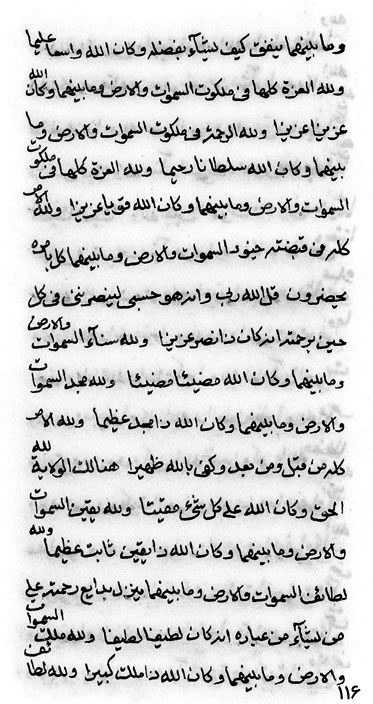 وما بينهما ينفق كيف يشآء بفضله وكان الله واسعا عليما
ولله العزة كلها فى ملكوت السموات والارض وما بينهما وكان الله
عزيزا عزيزا ولله الرحمة فى ملكوت السموات والارض وما
بينهما وكان الله سلطانا رحيما ولله العزة كلها فى ملكوت
السموات والارض وما بينهما وكان الله قويا عزيزا ولله الامر
كله فى قبضته جنود السموات والارض وما بينهما كل بامره
يحضرون قل الله ربى وانه هو حسبى لينصرننى فى كل
حين برحمته انه كان ذا نصر عزيزا ولله سنآء السموات والارض
وما بينهما وكان الله مضيئا مضيئا ولله مجد السموات
والارض وما بينهما وكان الله ذا مجد عظيما ولله الامر
كله من قبل ومن بعد وكفى بالله ظهيرا هنالك الولاية لله
الحق وكان الله على كل شىء مقيتا ولله يقين السموات
والارض وما بينهما وكان الله ذا يقين ثابت عظيما ولله
لطائف السموات والارض وما بينهما ينزل بدايع رحمته على
من يشآء من عباده انه كان لطيفا لطيفا ولله ملك السموات
والارض وما بينهما وكان الله ذا ملك كبيرا ولله لطائف
١١۶